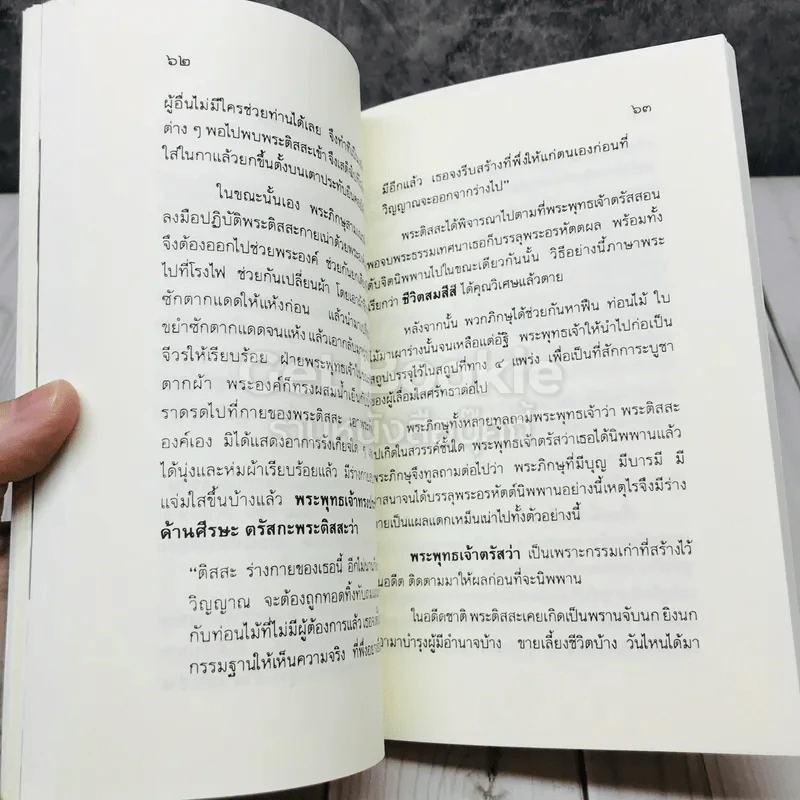 ๖๒
ผู้อื่นไม่มีใครช่วยท่านได้เลย จึงทำ
ต่าง ๆ พอไปพบพระติสสะเข้า จึงเสด็จ
ใส่ในกาแล้วยกขึ้นตั้งบนเตา
ในขณะนั้นเอง พระภิกษุ
ลงมือปฏิบัติพระติสสะกายเน่าด้วยพระ
จึงต้องออกไปช่วยพระองค์ ช่วยกัน
ไปที่โรงไฟ ช่วยกันเปลี่ยนผ้า โดย
ซักตากแดดให้แห้งก่อน แล้วนำ
ขยำซักตากแดดจนแห้ง แล้วเอา
จีวรให้เรียบร้อย ฝ่ายพระพุทธเจ้า
ตากผ้า พระองค์ก็ทรงผสมน้ำเย็น
ราดรดไปที่กายของพระติสสะ
องค์เอง มิได้แสดงอาการรังเกียจใด ๆ
ได้นุ่งและห่มผ้าเรียบร้อยแล้ว
แจ่มใสขึ้นบ้างแล้ว พระพุทธเจ้า
ด้านศีรษะ ตรัสกะพระติสสะว่า
“ติสสะ ร่างกายของเธอนี้
วิญญาณ จะต้องถูกทอดทิ้ง
กับท่อนไม้ที่ไม่มีผู้ต้องการแล้ว
กรรมฐานให้เห็นความจริง
๖๓
มีอีกแล้ว เธอจงรีบสร้างที่พึ่งให้แก่ตนเองก่อนที่
วิญญาณจะออกจากร่างไป”
พระติสสะได้พิจารณาไปตามที่พระพุทธเจ้าตรัสสอน
พอจบพระธรรมเทศนาเธอก็บรรลุพระอรหัตตผล พร้อมทั้ง
ดับจิตนิพพานไปในขณะเดียวกันนั้น วิธีอย่างนี้ภาษาพระ
เรียกว่า ชีวิตสมสีสี ได้คุณวิเศษแล้วตาย
หลังจากนั้น พวกภิกษุได้ช่วยกันหาฟืน ท่อนไม้ ใบ
ไม้มาเผาร่างนั้นจนเหลือแต่อัฐิ พระพุทธเจ้าให้นำไปก่อเป็น
สถูปบรรจุไว้ในสถูปที่ทาง ๔ แพร่ง เพื่อเป็นที่สักการะบูชา
ของผู้เลื่อมใสศรัทธาต่อไป
พระภิกษุทั้งหลายทูลถามพระพุทธเจ้าว่า พระติสสะ
ไปเกิดในสวรรค์ชั้นใด พระพุทธเจ้าตรัสว่าเธอได้นิพพานแล้ว
พระภิกษุจึงทูลถามต่อไปว่า พระภิกษุที่มีบุญ มีบารมี มี
วาสนาจนได้บรรลุพระอรหัตต์นิพพานอย่างนี้เหตุไรจึงมีร่าง
กายเป็นแผลแตกเหม็นเน่าไปทั้งตัวอย่างนี้
พระพุทธเจ้าตรัสว่า เป็นเพราะกรรมเก่าที่สร้างไว้
ในอดีต ติดตามมาให้ผลก่อนที่จะนิพพาน
ในอดีตชาติ พระติสสะเคยเกิดเป็นพรานจับนก ยิงนก
เอามาบำรุงผู้มีอำนาจบ้าง ขายเลี้ยงชีวิตบ้าง วันไหนได้มา
Get Bookie
ร้านหนังสือเก็ทบุ๊คคี้